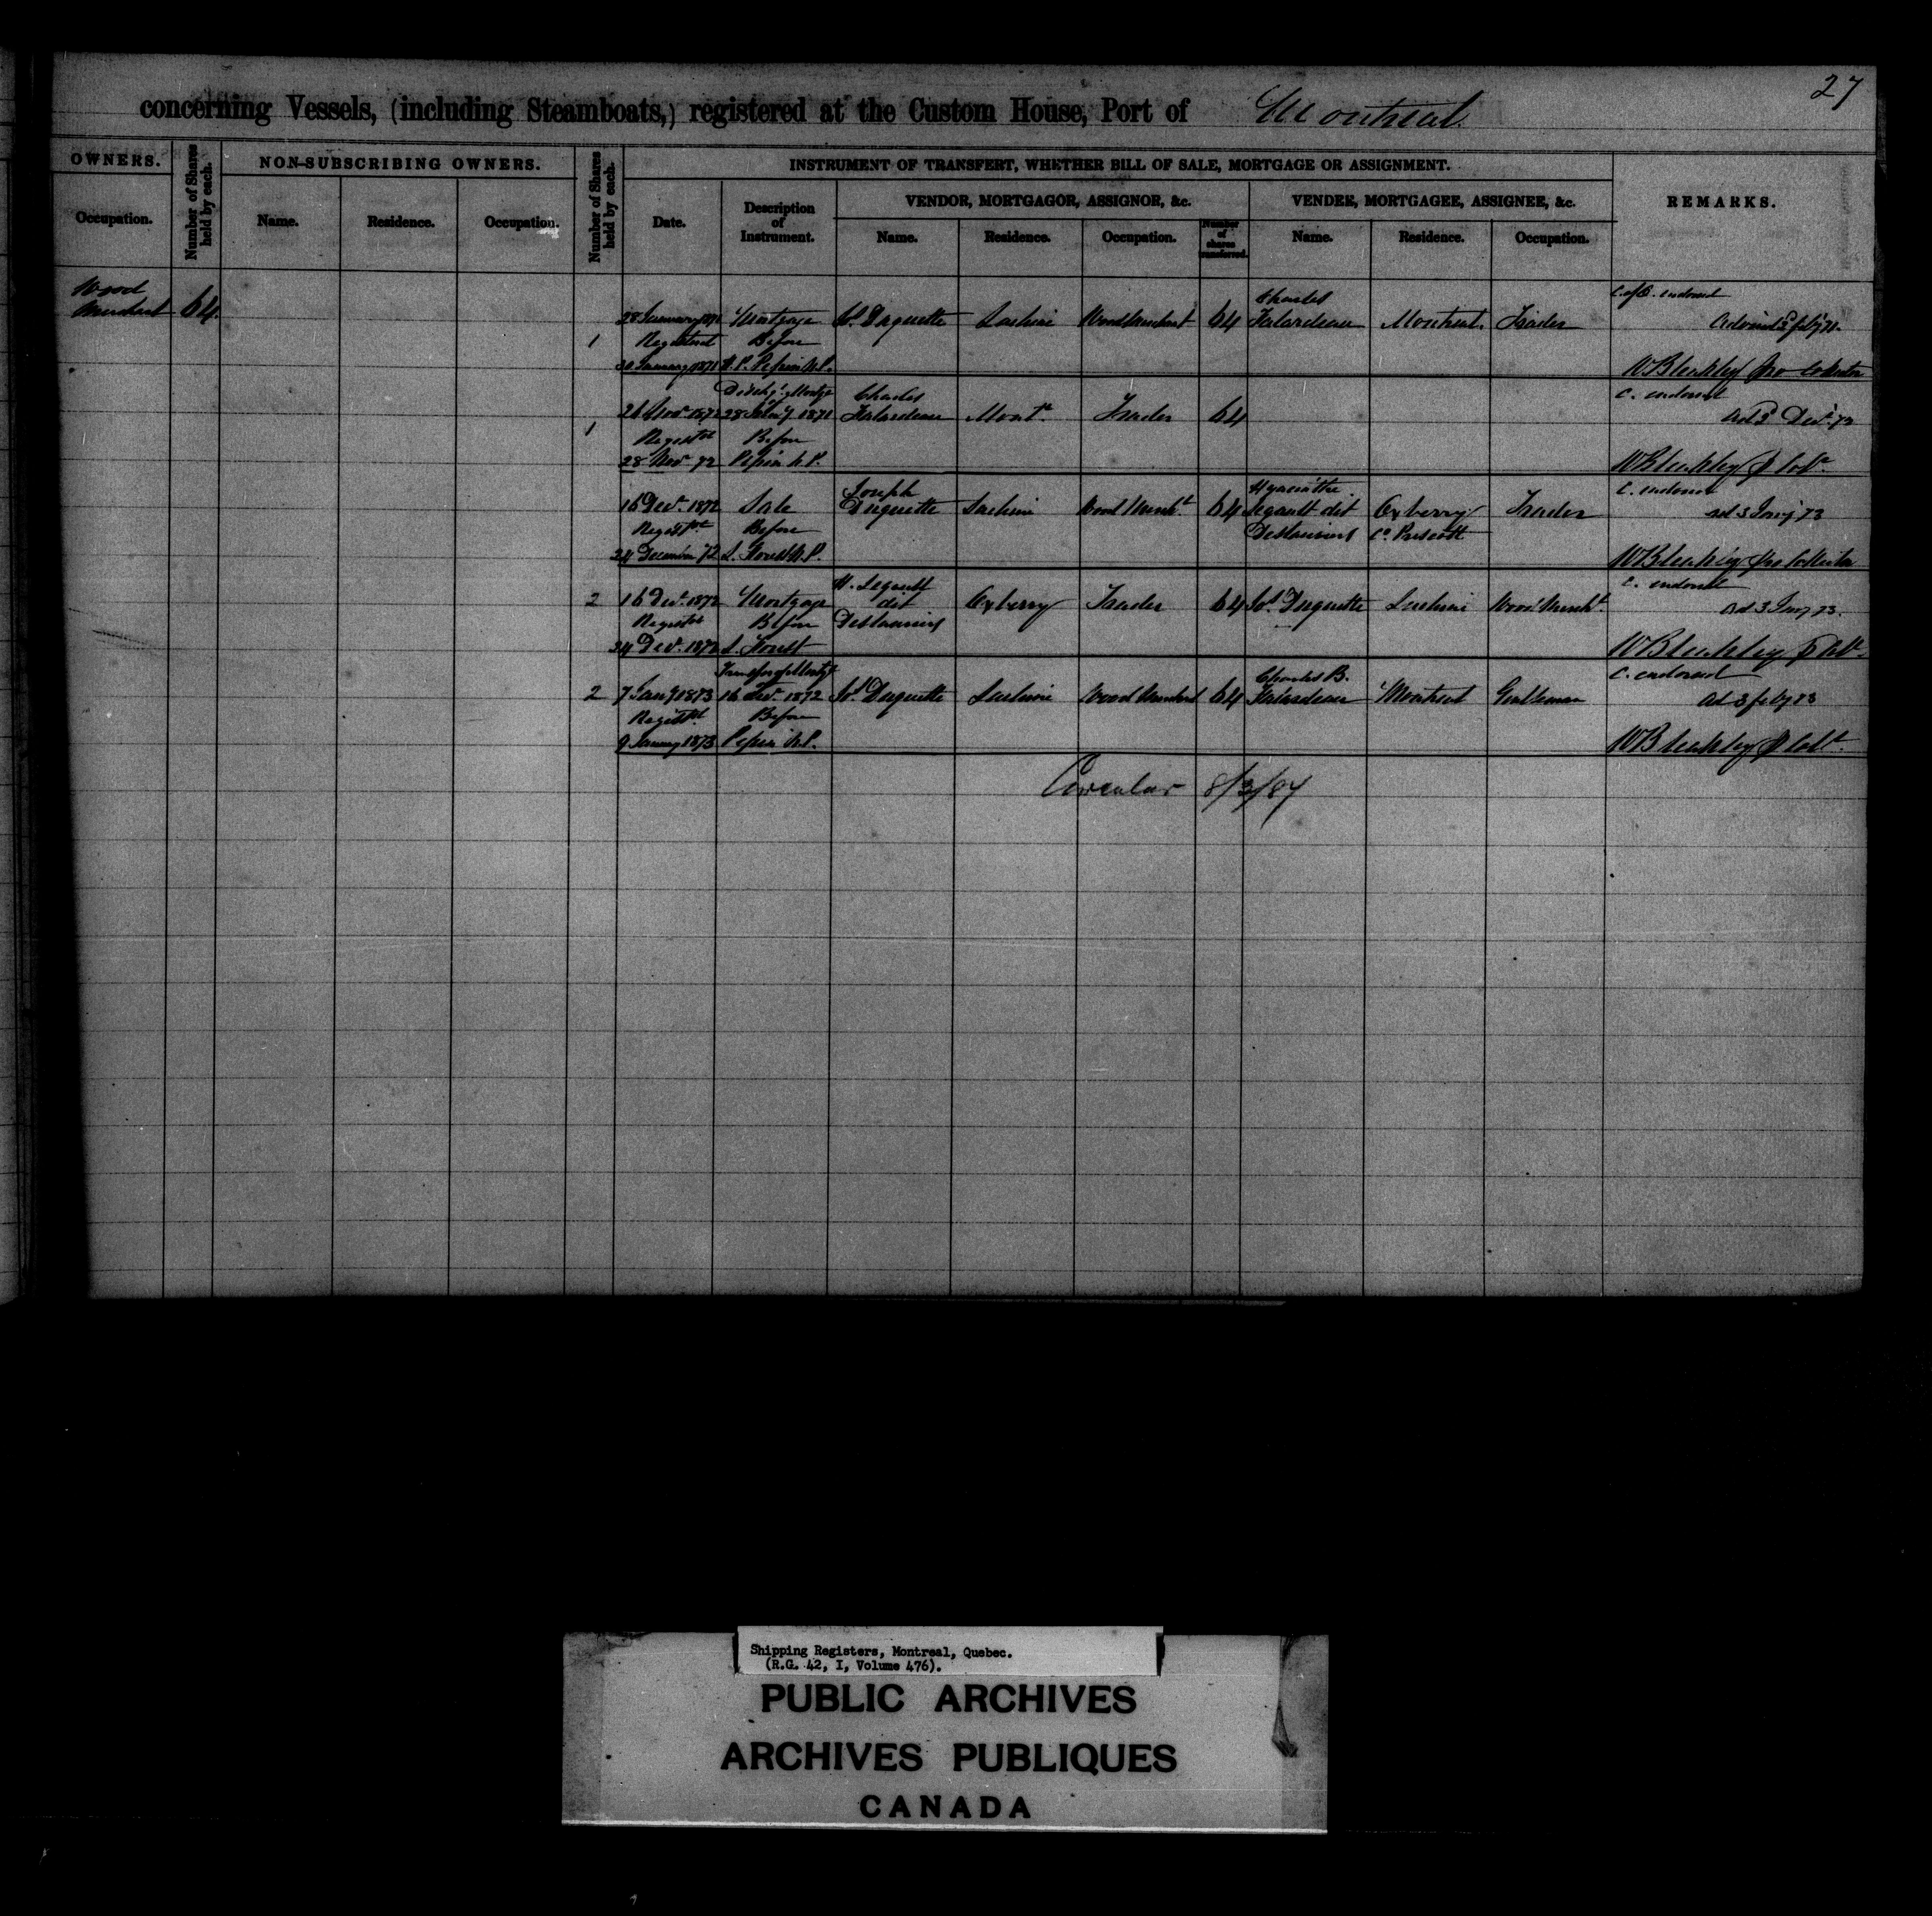 27
concerning Vessels, (including Steamboats,) registered at the Custom House, Port of Montreal.
OWNERS.
Number of Shares held by each.
NON-SUBSCRIBING OWNERS.
Number of Shares held by each.
INSTRUMENT OF TRANSFERT, WHETHER BILL OF SALE, MORTGAGE OR ASSIGNMENT.
REMARKS.
Occupation.
Name.
Residence.
Occupation.
Date.
Description of Instrument.
VENDOR, MORTGAGOR, ASSIGNOR, &c.
VENDEE, MORTGAGEE, ASSIGNEE, &c.
Name.
Residence.
Occupation.
Number of shares transferred.
Name.
Residence.
Occupation.
Wood
Merchant 64.
Charles
C. of O. endorsed
28 January 1871 Mortgage Js. Duquette Lachine Wood Merchant 64 Falardeau Montreal. Trader
1 Registered Before
30 January 1871 N.P.
W Bleakley pro Collector
Charles
C. endorsed
26 Novr. 1872 28 Jany 1871 Falardeau Mont. Trader 64
1 Registd Before
28 Novr 72 Pepin N.P.
W Bleakley
Joseph
Hyacinthe
C. endorsed
16 Decr. 1872 Sale Duquette Lachine Wood Mercht. 64 Legault dit Trader
ad 3 Jany 73
Registd. Before
Deslauriers Co. Prescott
24 December 72 N.P.
W Bleakley pro Collector
H. Legault
C. endorsed
2 16 Decr. 1872 Mortgage dit Trader 64 Js. Duquette Lachine Wood Mercht.
ad 3 Jany 73.
Registd Before Deslauriers
24 Decr. 1872
W Bleakley
Transfer of Mortge
Charles B.
C. endorsed
2 7 Jany 1873 16 Decr. 1872 Js. Duquette Lachine Wood Merchant 64 Falardeau Montreal Gentleman
ad 3 feby 73
Registd. Before
9 January 1873 Pepin N.P.
W Bleakley
Circular 8/3/84
Shipping Registers, Montreal, Quebec.
(R.G. 42, I, Volume 476).
PUBLIC ARCHIVES
ARCHIVES PUBLIQUES
CANADA